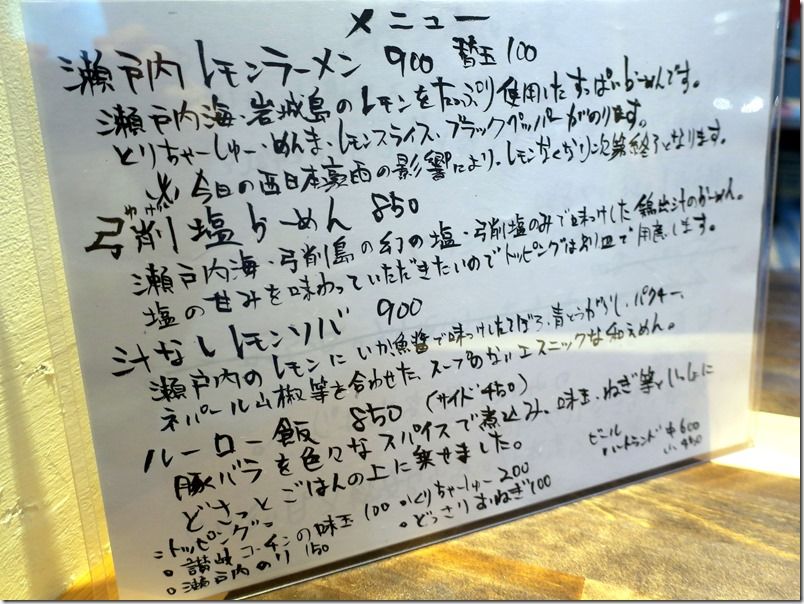 メニュー
瀬戸内レモンラーメン 900 替玉100
瀬戸内海・岩城島のレモンをたっぷり使用したすっぱいらーめんです。
とりちゃーしゅー・めんま・レモンスライス・ブラックペッパーがのります。
※今回の西日本豪雨の影響により、レモンなくなり次第終了となります。
弓削塩らーめん 850
ゆげ
瀬戸内海・弓削島の幻の塩・弓削塩のみで味つけした鶏出汁のらーめん。
塩の甘みを味わっていただきたいのでトッピングは別皿で用意します。
汁なしレモンソバ 900
瀬戸内のレモンにいか魚醤で味つけしたそぼろ、青とうがらし、パクチー、
ネパール山椒等を合わせた、スープのないエスニックな和えめん。
ルーロー飯 850 (サイド450)
豚バラを色々なスパイスで煮込み、味玉、ねぎ等といっしょに
どさっとごはんの上に乗せました。
ビール
ハートランド 中600
小450
トッピング
。讃岐コーチンの味玉 100
。とりちゃーしゅー 200
。瀬戸内のり 150
。どっさりおねぎ100